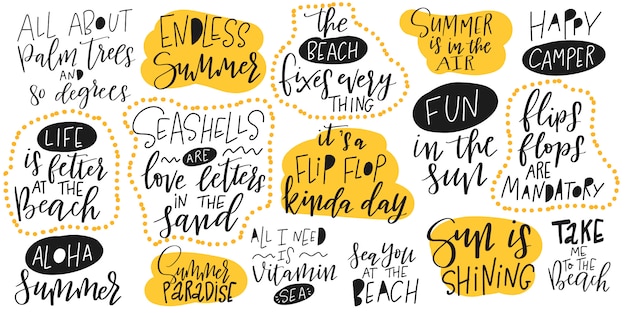 ALL ABOUT
Palm trees
AND
80 degrees
ENDLESS
Summer
the
BEACH
fixes every
THING
SUMMER
is in the
AIR
HAPPY
CAMPER
LIFE
is fetter
AT THE
Beach
SEASHELLS
ARE
love letters
IN THE
sand
it's a
FLIP FLOP
kinda day
FUN
in the
sun
flips
flops
ARE
MANDATORY
ALOHA
summer
Summer
PARADISE
ALL I NEED
IS
Vitamin
SEA
Sea You
AT THE
BEACH
Sun is
SHINING
TAKE
ME
TO THE
Beach